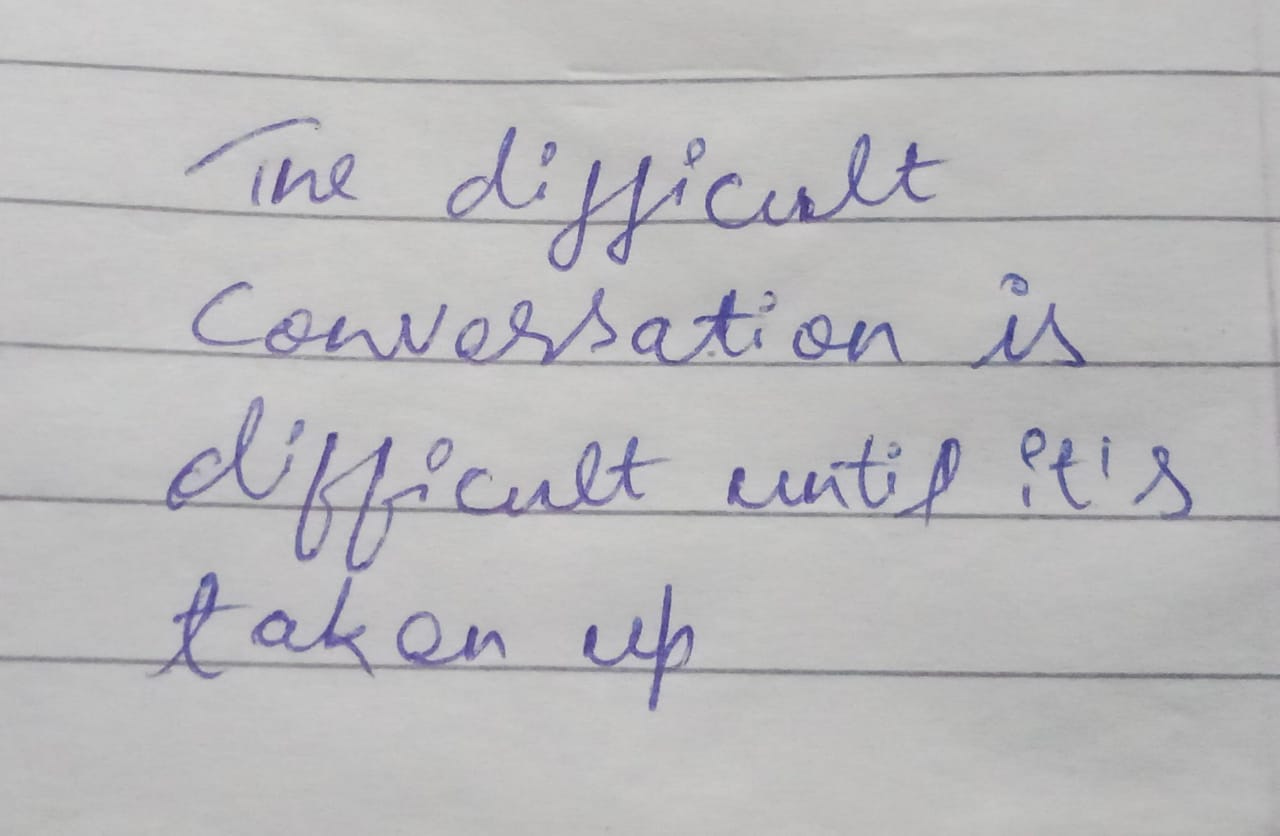 The difficult
conversation is
difficult until it's
taken up